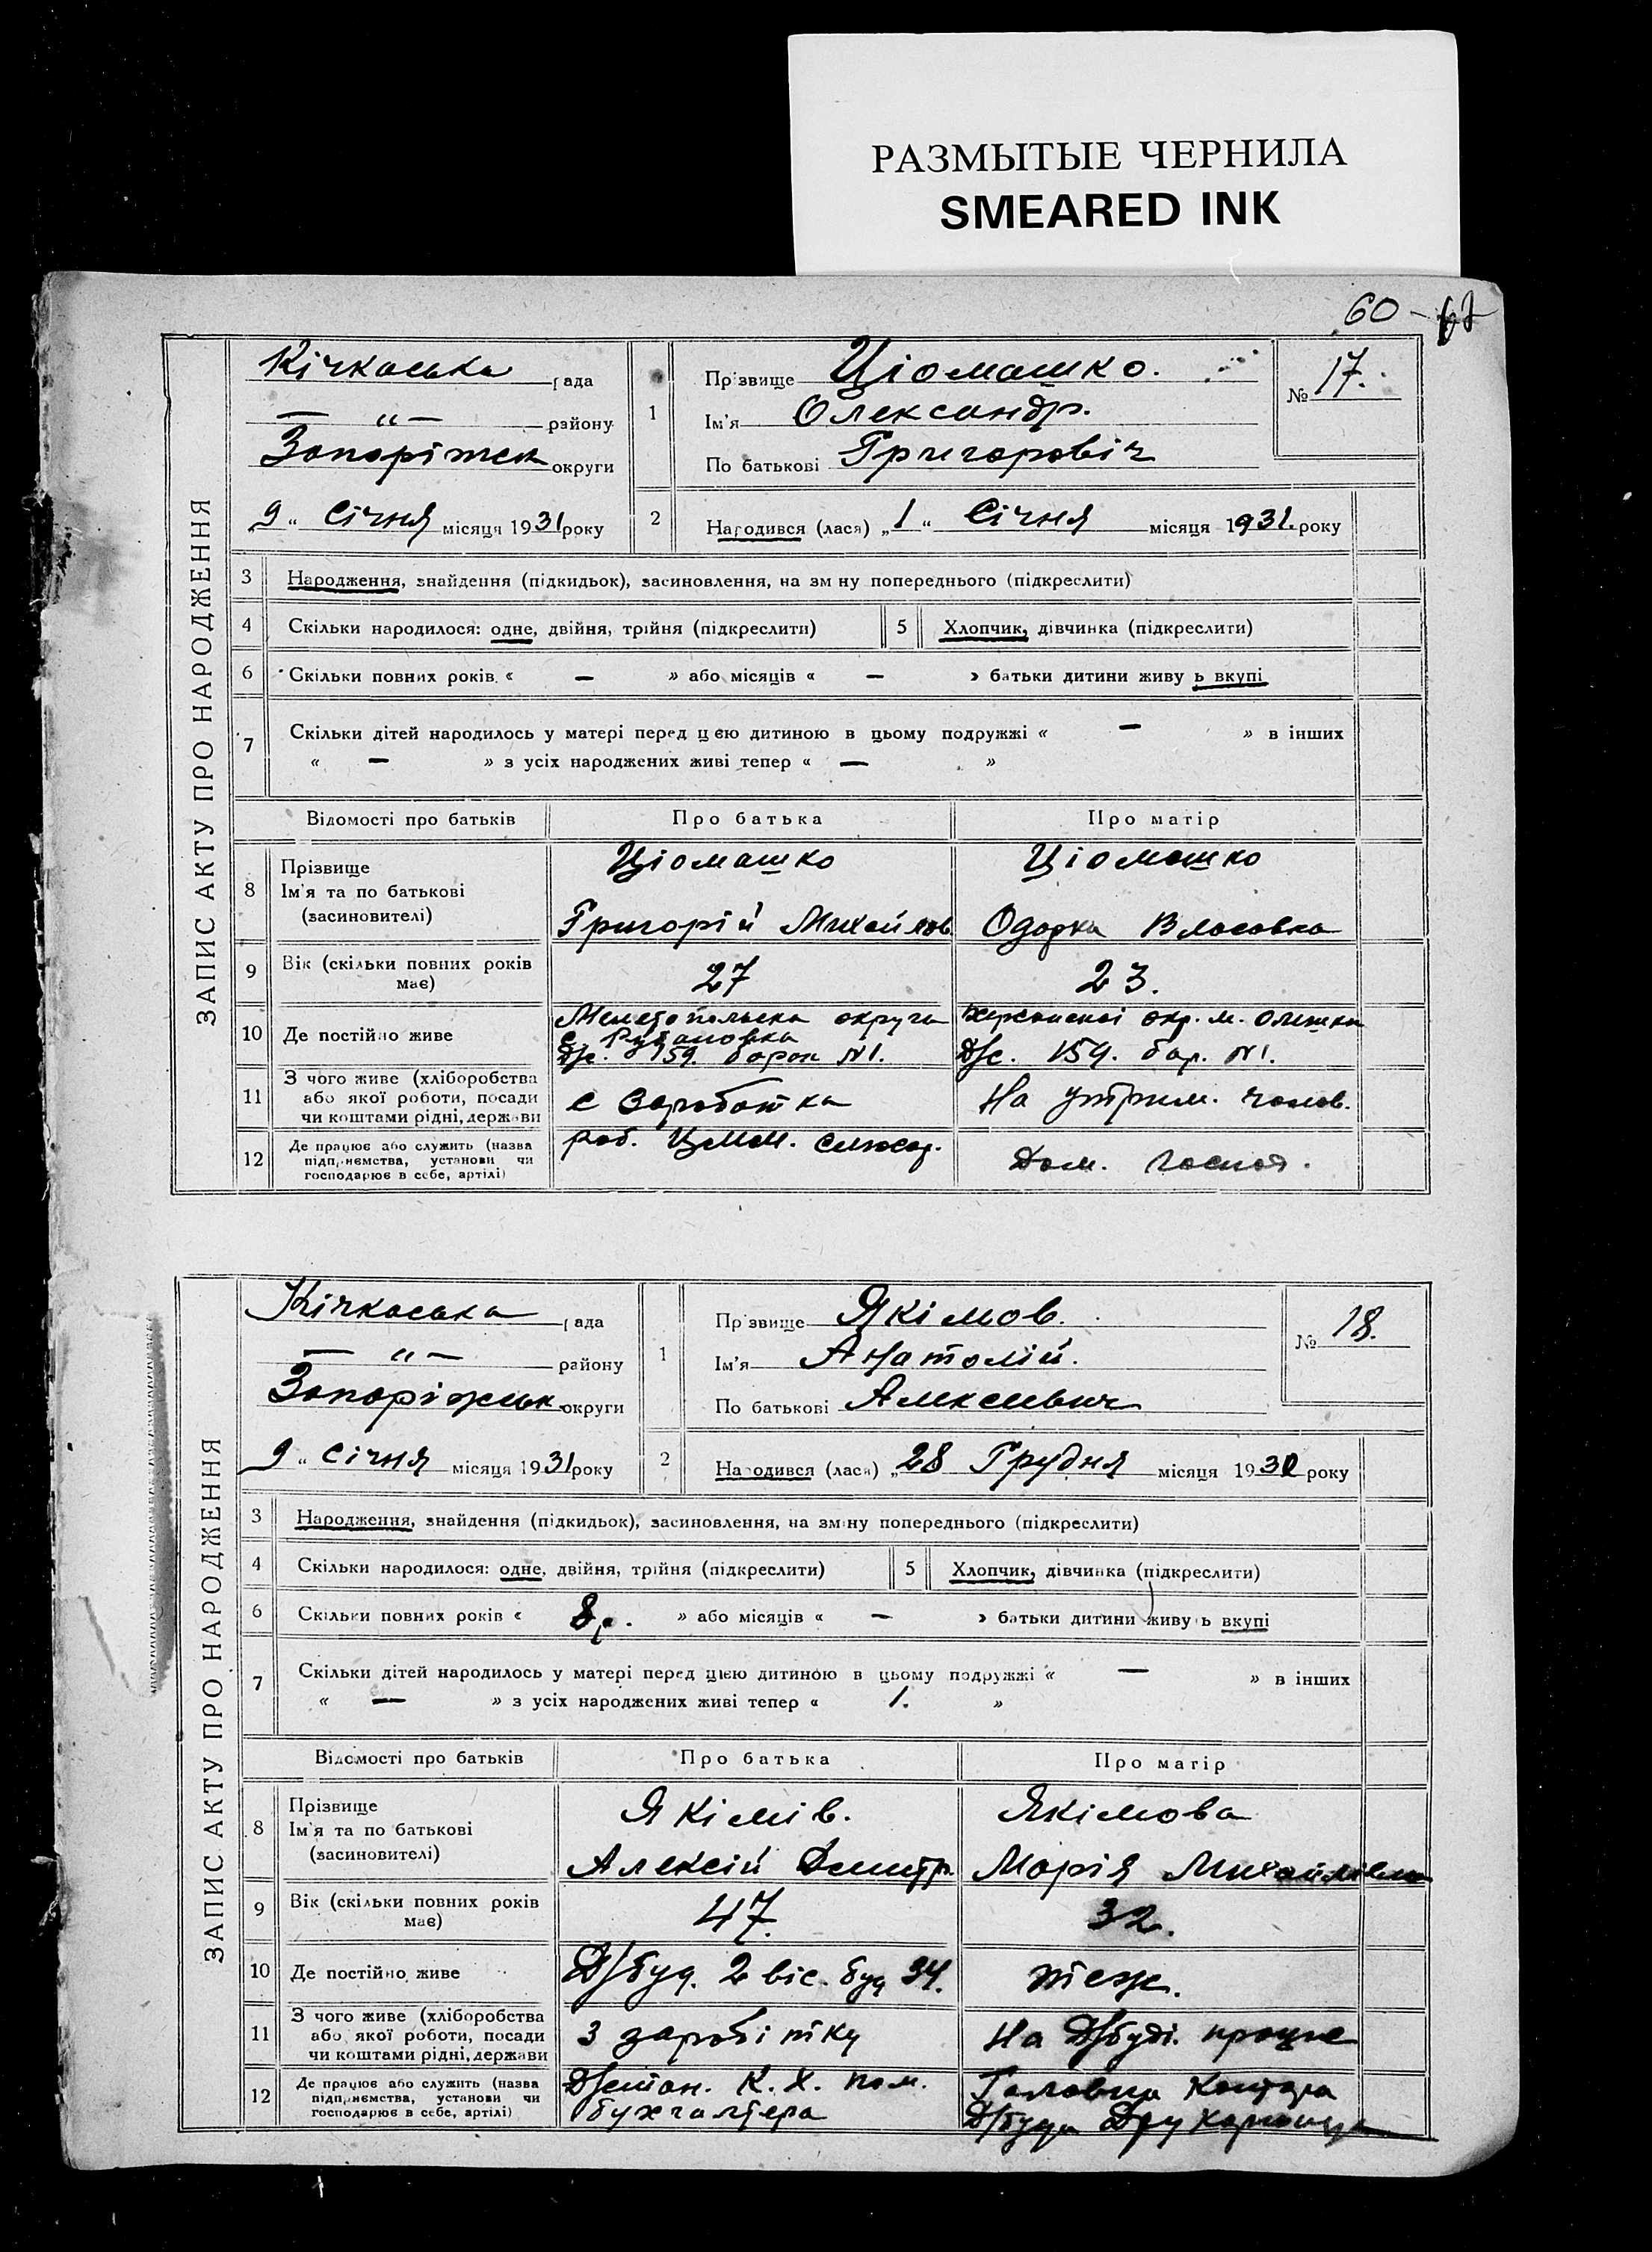 РАЗМЫТЫЕ ЧЕРНИЛА
SMEARED INK
60
ЗАПИС АКТУ ПРО НАРОДЖЕННЯ
Кічкаська рада
— " — району
Запоріжськ округи
9 " Січня місяця 1931 року
1 Прізвище Ціомашко.
Ім'я Олександр.
По батькові Григоровіч
№ 17.
2 Народився (лася) „1" Січня місяця 1931. року
3 Народження, знайдення (підкидьок), засиновлення, на зміну попереднього (підкреслити)
4 Скільки народилося: одне, двійня, трійня (підкреслити) 5 Хлопчик, дівчинка (підкреслити)
6 Скільки повних років « — » або місяців « — » батьки дитини живуть вкупі
7 Скільки дітей народилось у матері перед цією дитиною в цьому подружжі « — » в інших
« — » з усіх народжених живі тепер « — »
Відомості про батьків Про батька Про матір
8 Прізвище
Ім'я та по батькові
(засиновителі)
Ціомашко
Григорій Михайлов.
Ціомашко
Одарка Власовна
9 Вік (скільки повних років має) 27 23.
10 Де постійно живе
Мелетопольска округа
с. Рубановка
Дс. 159. барак №1.
Херсонскоі окр. м. Олешки
Дс. 159. бар. №1.
11 З чого живе (хліборобства
або якої роботи, посади
чи коштами рідні, держави
с Заработка
На утрим. чолов.
12 Де працює або служить (назва
підприємства, установи чи
господарює в себе, артілі)
роб. слюсар.
Дом. господ.
ЗАПИС АКТУ ПРО НАРОДЖЕННЯ
Кічкаська рада
— " — району
Запоріжськ округи
9 " Січня місяця 1931 року
1 Прізвище Якімов.
Ім'я Анатолій.
По батькові Алексеевич
№ 18.
2 Народився (лася) „28 Грудня місяця 1930 року
3 Народження, знайдення (підкидьок), засиновлення, на зміну попереднього (підкреслити)
4 Скільки народилося: одне, двійня, трійня (підкреслити) 5 Хлопчик, дівчинка (підкреслити)
6 Скільки повних років « 8 р. » або місяців « — » батьки дитини живуть вкупі
7 Скільки дітей народилось у матері перед цією дитиною в цьому подружжі « — » в інших
« — » з усіх народжених живі тепер « 1. »
Відомості про батьків Про батька Про матір
8 Прізвище
Ім'я та по батькові
(засиновителі)
Якімів.
Алексій Дмитр.
Якімова
Марія Михайлівна
9 Вік (скільки повних років має) 47. 32.
10 Де постійно живе
Д/буд. 2 віс. буд 34.
теж.
11 З чого живе (хліборобства
або якої роботи, посади
чи коштами рідні, держави
З заробітку
На Д/буді. працює
12 Де працює або служить (назва
підприємства, установи чи
господарює в себе, артілі)
К. Х. пом.
бухгалтера
Головна Контора
Д/буда Друкарниця